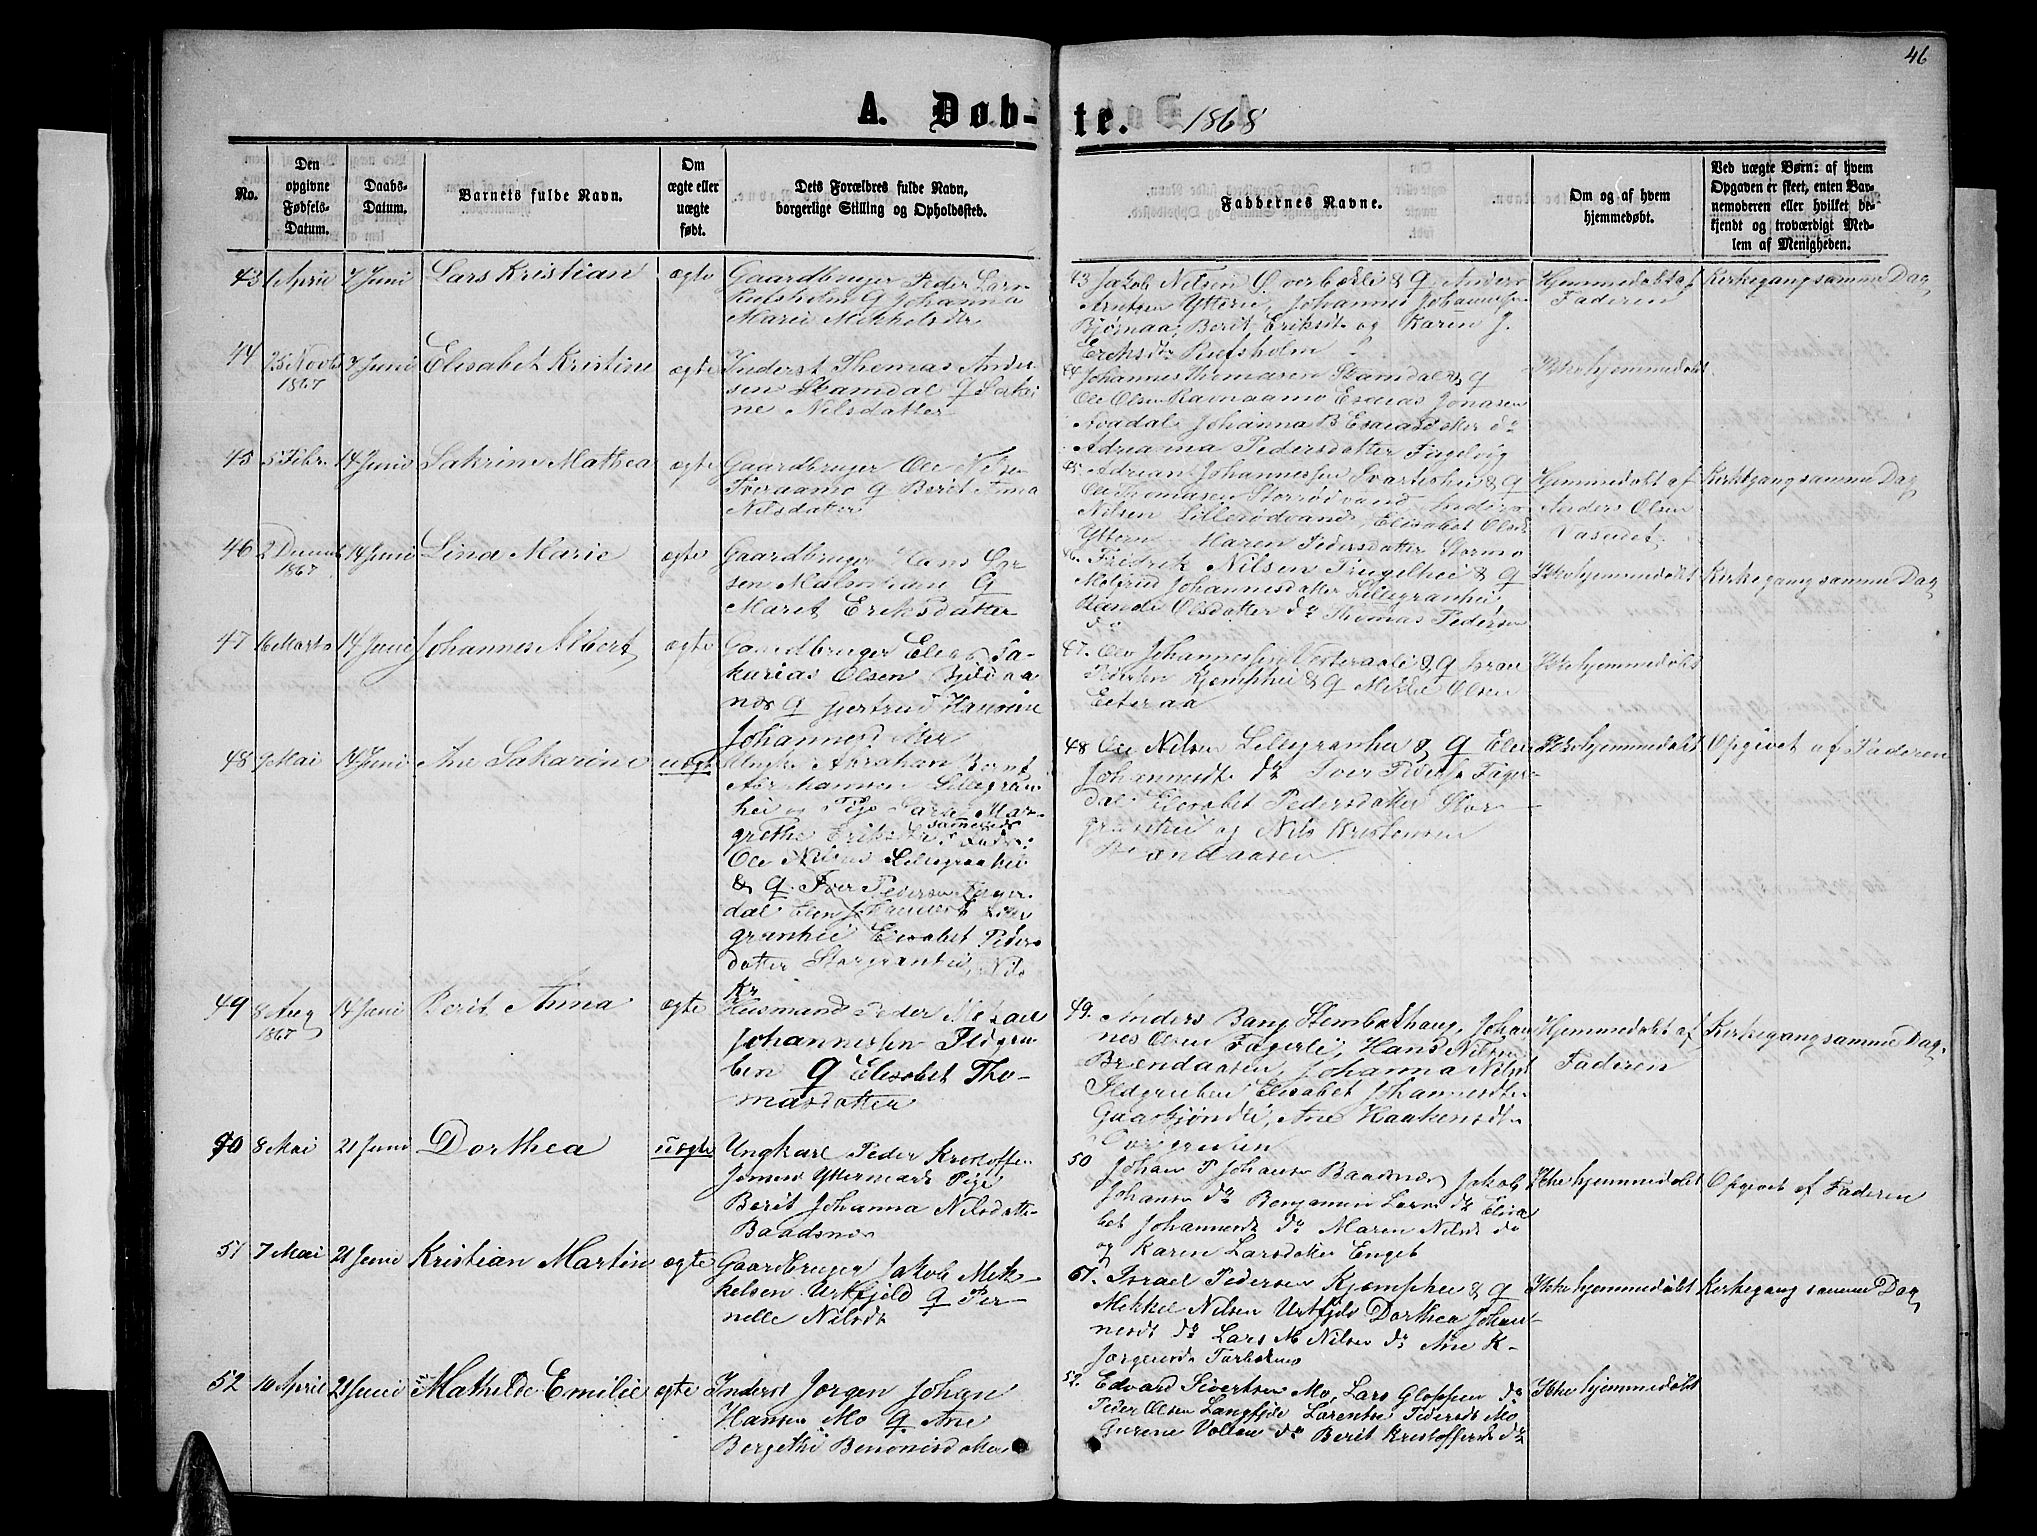 46
A. Døb-te. 1868
No.
Den opgivne Fødsels-Datum.
Daabs-Datum.
Barnets fulde Navn.
Om ægte eller uægte født.
Dets Forældres fulde Navn, borgerlige Stilling og Opholdssted.
Faddernes Navne.
Om og af hvem hjemmedøbt.
Ved uægte Børn: af hvem Opgaven er skeet, enten Barnemoderen eller hvilket bekjendt og troværdigt Medlem af Menigheden.
43 1 April 7 Juni Lars Kristian ægte Gaardbruger Peder Lars
Refsholm & Johanna
Marie Mikkelsdtr
43 Jakob Nilsen Øverbækli & Q Anders
Arntsen Ytterli, Johannes Johannesen
Bjørnaa, Berit Eriksdt. og Karen J.
Eriksdtr Refsholm
Hjemmedøbt af
Faderen
Kirkegang samme Dag
44 25 Novb 1867 7 Juni Elisabet Kristine ægte Inderst Thomas Ander
sen Skamdal Q
ne Nilsdatter
44 Johannes Thomasen Skamdal & Q
Ole Olsen Esaias Jonasen
Johanna B Esaiasdatter do
Adrianna Pedersdatter Fagelvig
Ikke hjemmedøbt
45 5 Febr. 14 Juni Sakrine Mathea ægte Gaardbruger Ole Nilsen
Q Berit Anna
Nilsdatter
45. Adrian Johannessen Svartishei & Q
Ole Thomasen Storrødvand, Anders
Nilsen Lillerødvand, Elisabet Olsdt
Yttern Maren Pedersdatter Stormo
Hjemmedøbt af
Anders Olsen
Kirkegang samme Dag
46 2 Decemb 1867 14 Juni Lina Marie ægte Gaardbruger Hans
sen Q
Marit Eriksdatter
46. Fredrik Nilsen Tingelhei & Q
Johannesdatter Lillegranhei,
Olsdatter do Thomas Pedersen
do
Ikke hjemmedøbt Kirkegang samme Dag
47 16 Marts 14 Juni Johannes Albert ægte Gaardbruger Elias Sa-
karias Olsen
næs Q Gjertrud
Johannesdatter
47. Ole Johannessen Vesteraali & Q Israel
Pedersen Kjemphei & Q Mikkel Olsen
Eiteraa
Ikke hjemmedøbt
48 9 Mai 14 Juni Ane Sakarine uægte Abraham Bernt
Abrahamsen Lillegran
hei og Pige Sara Mar-
grethe Eriksdtr sammesteds
Ole Nilsen Lillegranhei
& Q. Iver Pedersen Fager
dal Elen Johannesd Lille
granhei Elisabet Peders
datter Storgranhei, Nils
Kr
48 Ole Nilsen Lillegranhei & Q Elen
Johannesdt. do Iver Peders. Fager-
dal Elisabet Pedersdatter Stor
granhei og Nils Kristensen
Brændaasen
Ikke hjemmedøbt Opgivet af Faderen
49 8 Aug 1867 14 Juni Berit Anna ægte Husmand Peder Mikael
Johannessen Ildgru-
ben Q Elisabet Tho-
masdatter
49. Anders Bang Stenbækhaug, Johan
nes Olsen Fagerli, Hans Nilsen
Brændaasen, Johanna Nilsdt
Ildgruben Elisabet Johannesdt.
Ane Haakensdt.
Hjemmedøbt af
Faderen
Kirkegang samme Dag.
50 8 Mai 21 Juni Dorthea uægte Ungkarl Peder Kristoffer
Jensen Yttermark Pige
Berit Johanna Nilsdatter
Baadsnæs
50 Johan P Johansen Baadsnæs, Jakob
Johansen do Benjamin Larsen do Elisa
bet Johannesdt do Maren Nilsdt do
og Karen Larsdatter Enget
Ikke hjemmedøbt Opgivet af Faderen
51 7 Mai 21 Juni Kristian Martin ægte Gaardbruger Jakob Mik-
kelsen Urtfjeld Q Per-
nelle Nilsdt
51. Israel Pedersen Kjemphei & Q
Mikkel Nilsen Urtfjeld Dorthea Johan-
nesdt do Lars M Nilsen do Ane K-
Jørgensdt
Ikke hjemmedøbt Kirkegang samme Dag
52 10 April 21 Juni Mathilde Emilie ægte Inderst Jørgen Johan
Hansen Mo Q Ane
Bergethe Benonisdatter
52. Edvard Sivertsen Mo, Lars Gloppen do
Peder Olsen Langfjeld Lorentse Pedersdt Mo
Gurine Vollan do Berit Kristoffersdt do
Ikke hjemmedøbt